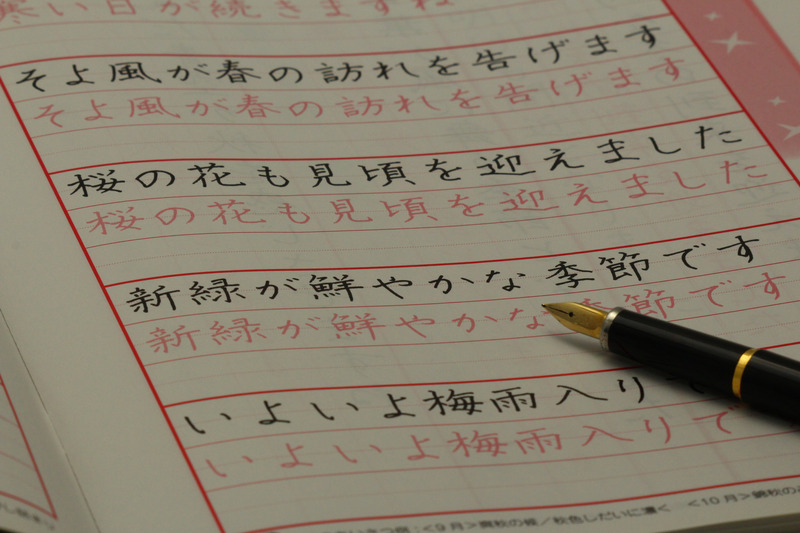 寒い日が続きますね
そよ風が春の訪れを告げます
そよ風が春の訪れを告げます
桜の花も見頃を迎えました
桜の花も見頃を迎えました
新緑が鮮やかな季節です
新緑が鮮やかな季節です
いよいよ梅雨入り
いよいよ梅雨入りで
<9月>爽秋の候/秋色しだいに濃く <10月>錦秋の